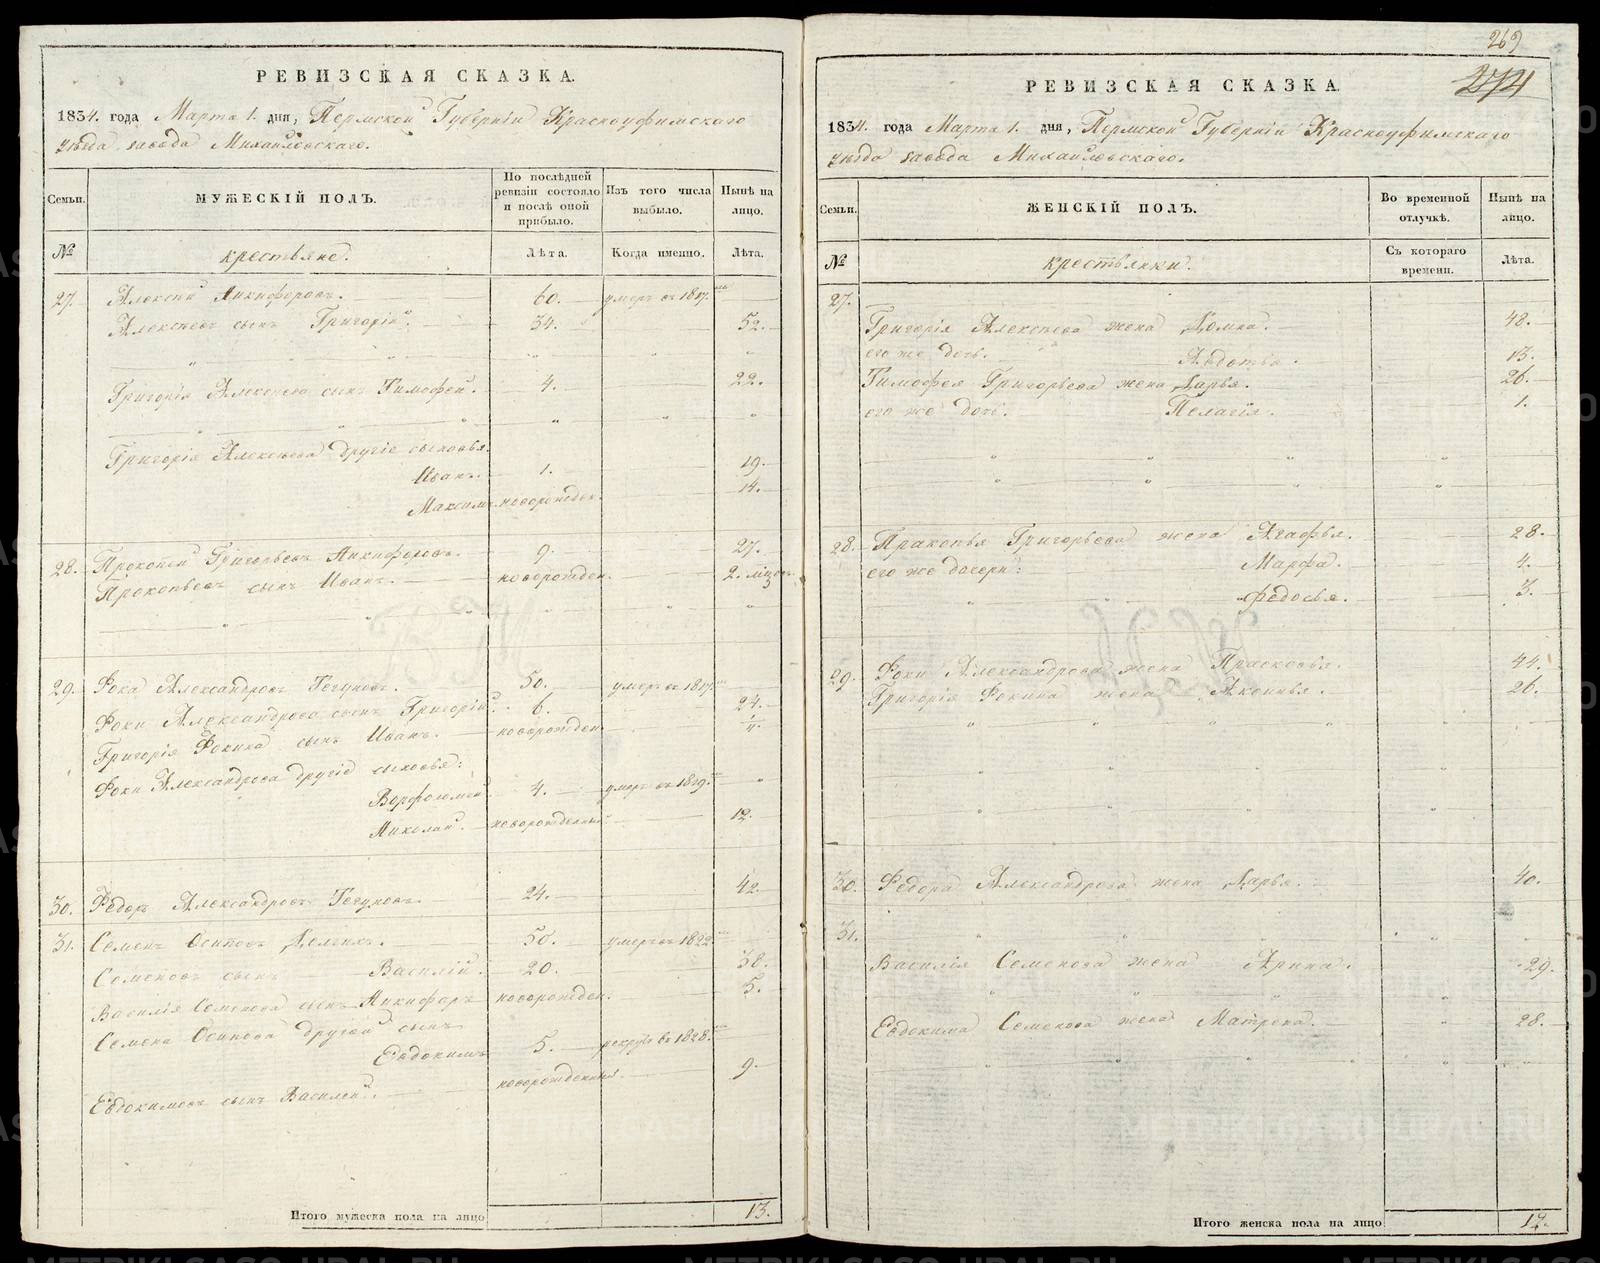 РЕВИЗСКАЯ СКАЗКА.
1834. года Марта 1. дня, Пермской Губерніи Красноуфимскаго
уѣзда завода Михайловскаго.
Семьи.
МУЖЕСКІЙ ПОЛЪ.
По послѣдней ревизіи состояло и послѣ оной прибыло.
Изъ того числа выбыло.
Нынѣ на лицо.
№
крестьяне.
Лѣта.
Когда именно.
Лѣта.
27. Алексѣй Никифоровъ. 60. умеръ въ 1817.мъ
Алексѣевъ сынъ Григорій. 34. 52.
Григорія Алексѣева сынъ Тимофей. 4. 22.
Григорія Алексѣева другіе сыновья
Иванъ. 1. 19.
Максимъ новорожден. 14.
28. Прокопій Григорьевъ Никифоровъ. 9. 27.
Прокопьевъ сынъ Иванъ. новорожден. 2. мѣсяц
29. Фока Александровъ 50. умеръ въ 1817.мъ
Фоки Александрова сынъ Григорій. 6. 24.
Григорія Фокина сынъ Иванъ. новорожден.
Фоки Александрова другіе сыновья:
Варфоломей 4. умеръ въ 1819.мъ
Николай. новорожденный 12.
30. Федоръ Александровъ 24. 42.
31. Семенъ Осиповъ 50. умеръ въ 1822.мъ
Семеновъ сынъ Василій. 20. 38.
Василія Семенова сынъ Никифоръ новорожден. 5.
Семена Осипова другой сынъ
Евдокимъ 5. рекрутъ въ 1828.мъ
Евдокимовъ сынъ Василій. новорожденный. 9.
Итого мужеска пола на лицо 13.
269
274
РЕВИЗСКАЯ СКАЗКА.
1834. года Марта 1. дня, Пермской Губерніи Красноуфимскаго
уѣзда завода Михайловскаго.
Семьи.
ЖЕНСКІЙ ПОЛЪ.
Во временной отлучкѣ.
Нынѣ на лицо.
№
крестьянки.
Съ котораго времени.
Лѣта.
27.
Григорія Алексѣева жена Домна. 48.
его же дочь. Авдотья. 13.
Тимофея Григорьева жена Дарья. 26.
его же дочь. Пелагія. 1.
28. Пракопья Григорьева жена Агафья. 28.
его же дочери: Марфа. 4.
Федосья. 3.
29. Фоки Александрова жена Прасковья. 44.
Григорія Фокина жена Аксинья. 26.
30. Федора Александрова жена Дарья. 40.
31.
Василія Семенова жена Арина. 29.
Евдокима Семенова жена Матрена. 28.
Итого женска пола на лицо 12.
METRIKI.GASO-URAL.RU